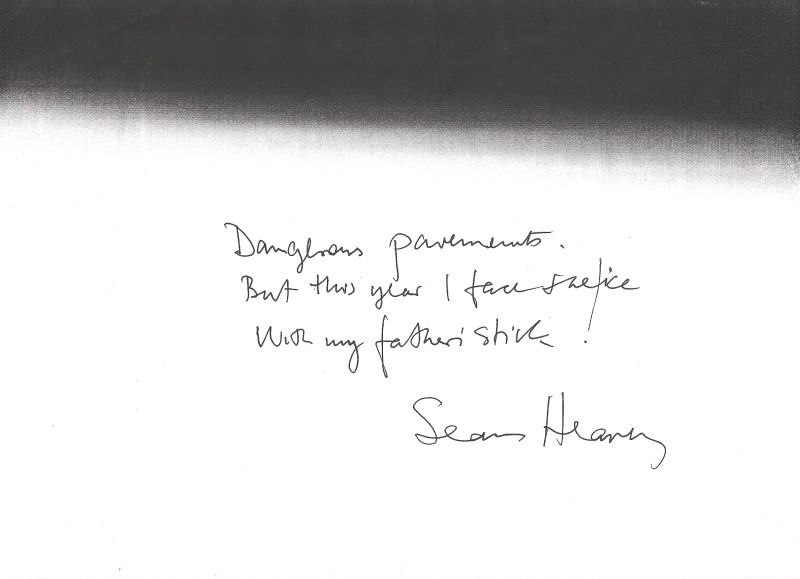 Dangerous pavements.
But this year I face the ice
With my father's stick!
Seamus Heaney